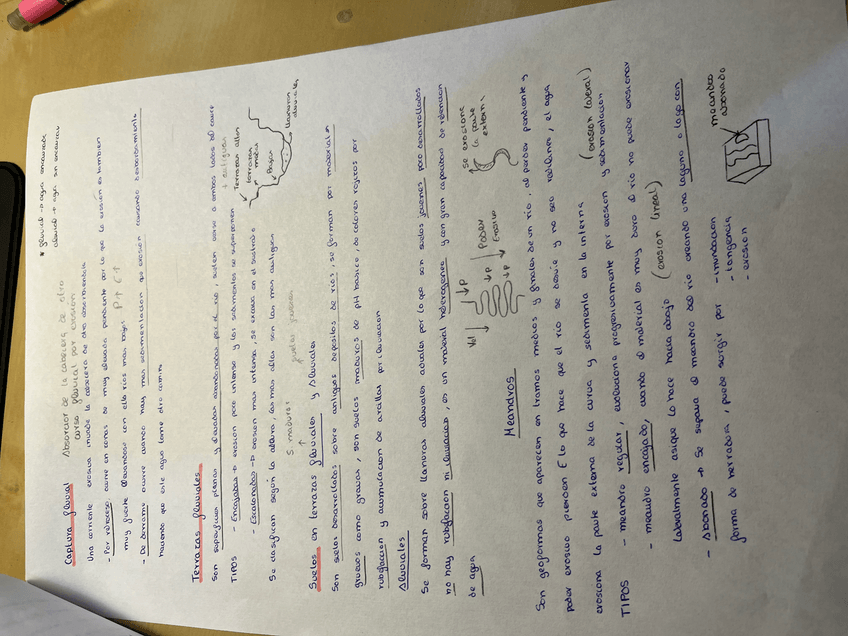 * fluvial → agua encauzada
aluvial → agua sin encauzar
Captura fluvial
Absorción de la cabecera de otro
curso fluvial por erosión
Una corriente erosiva invade la cabecera de otro
- Por retroceso, ocurre en zonas de muy elevada pendiente por lo que la erosión es tambien
muy fuerte llevandose con ella rios mas bajos P↑ E↑
- De derrame ocurre cuando hay mas sedimentacion que erosion causando desbordamiento
haciendo que este agua tome otro camino
Terrazas fluviales
Son superficies planas y elevadas abandonadas por el rio, suelen darse a ambos lados del cauce
TIPOS - Encajadas → erosion poco intensa y los sedimentos se superponen
- Escalonadas → erosion mas intensa, se excava en el sustrato
Se clasifican según la altura, las mas altas son las mas antiguas
+ antiguas
Terrazas altas
terrazas media
Bajas
llanuras aluviales
S. maduros
↑
suelos jovenes
Suelos en terrazas fluviales y aluviales
Son suelos desarrollados sobre antiguos depositos de rios, se forman por materiales
gruesos como gravas, son suelos maduros de pH basico, de colores rojizos por
rubefaccion y acumulacion de arcillas por iluviacion
Aluviales
Se forman sobre llanuras aluviales actuales por lo que son suelos jovenes poco desarrollados
no hay rubefaccion ni iluviacion, es un material heterogeneo y con gran capacidad de retencion
de agua
Meandros
Vel ↓
↓P
↓P
Poder
Erosivo
se erosiona
la parte
externa
Son geoformas que aparecen en tramos medios y finales de un rio, al perder pendiente y
poder erosivo pierden E lo que hace que el rio se desvie y no sea rectilineo, el agua
erosiona la parte externa de la curva y sedimenta en la interna
TIPOS - meandro regular, evoluciona progresivamente por erosion y sedimentacion (erosion lateral)
- meandro encajado, cuando el material es muy duro el rio no puede erosionar
lateralmente asique lo hace hacia abajo (erosion lineal)
- Abonado → Se separa el meandro del rio creando una laguna o lago con
forma de herradura, puede surgir por - inundacion
- tangencia
- erosion
meandro
abonado